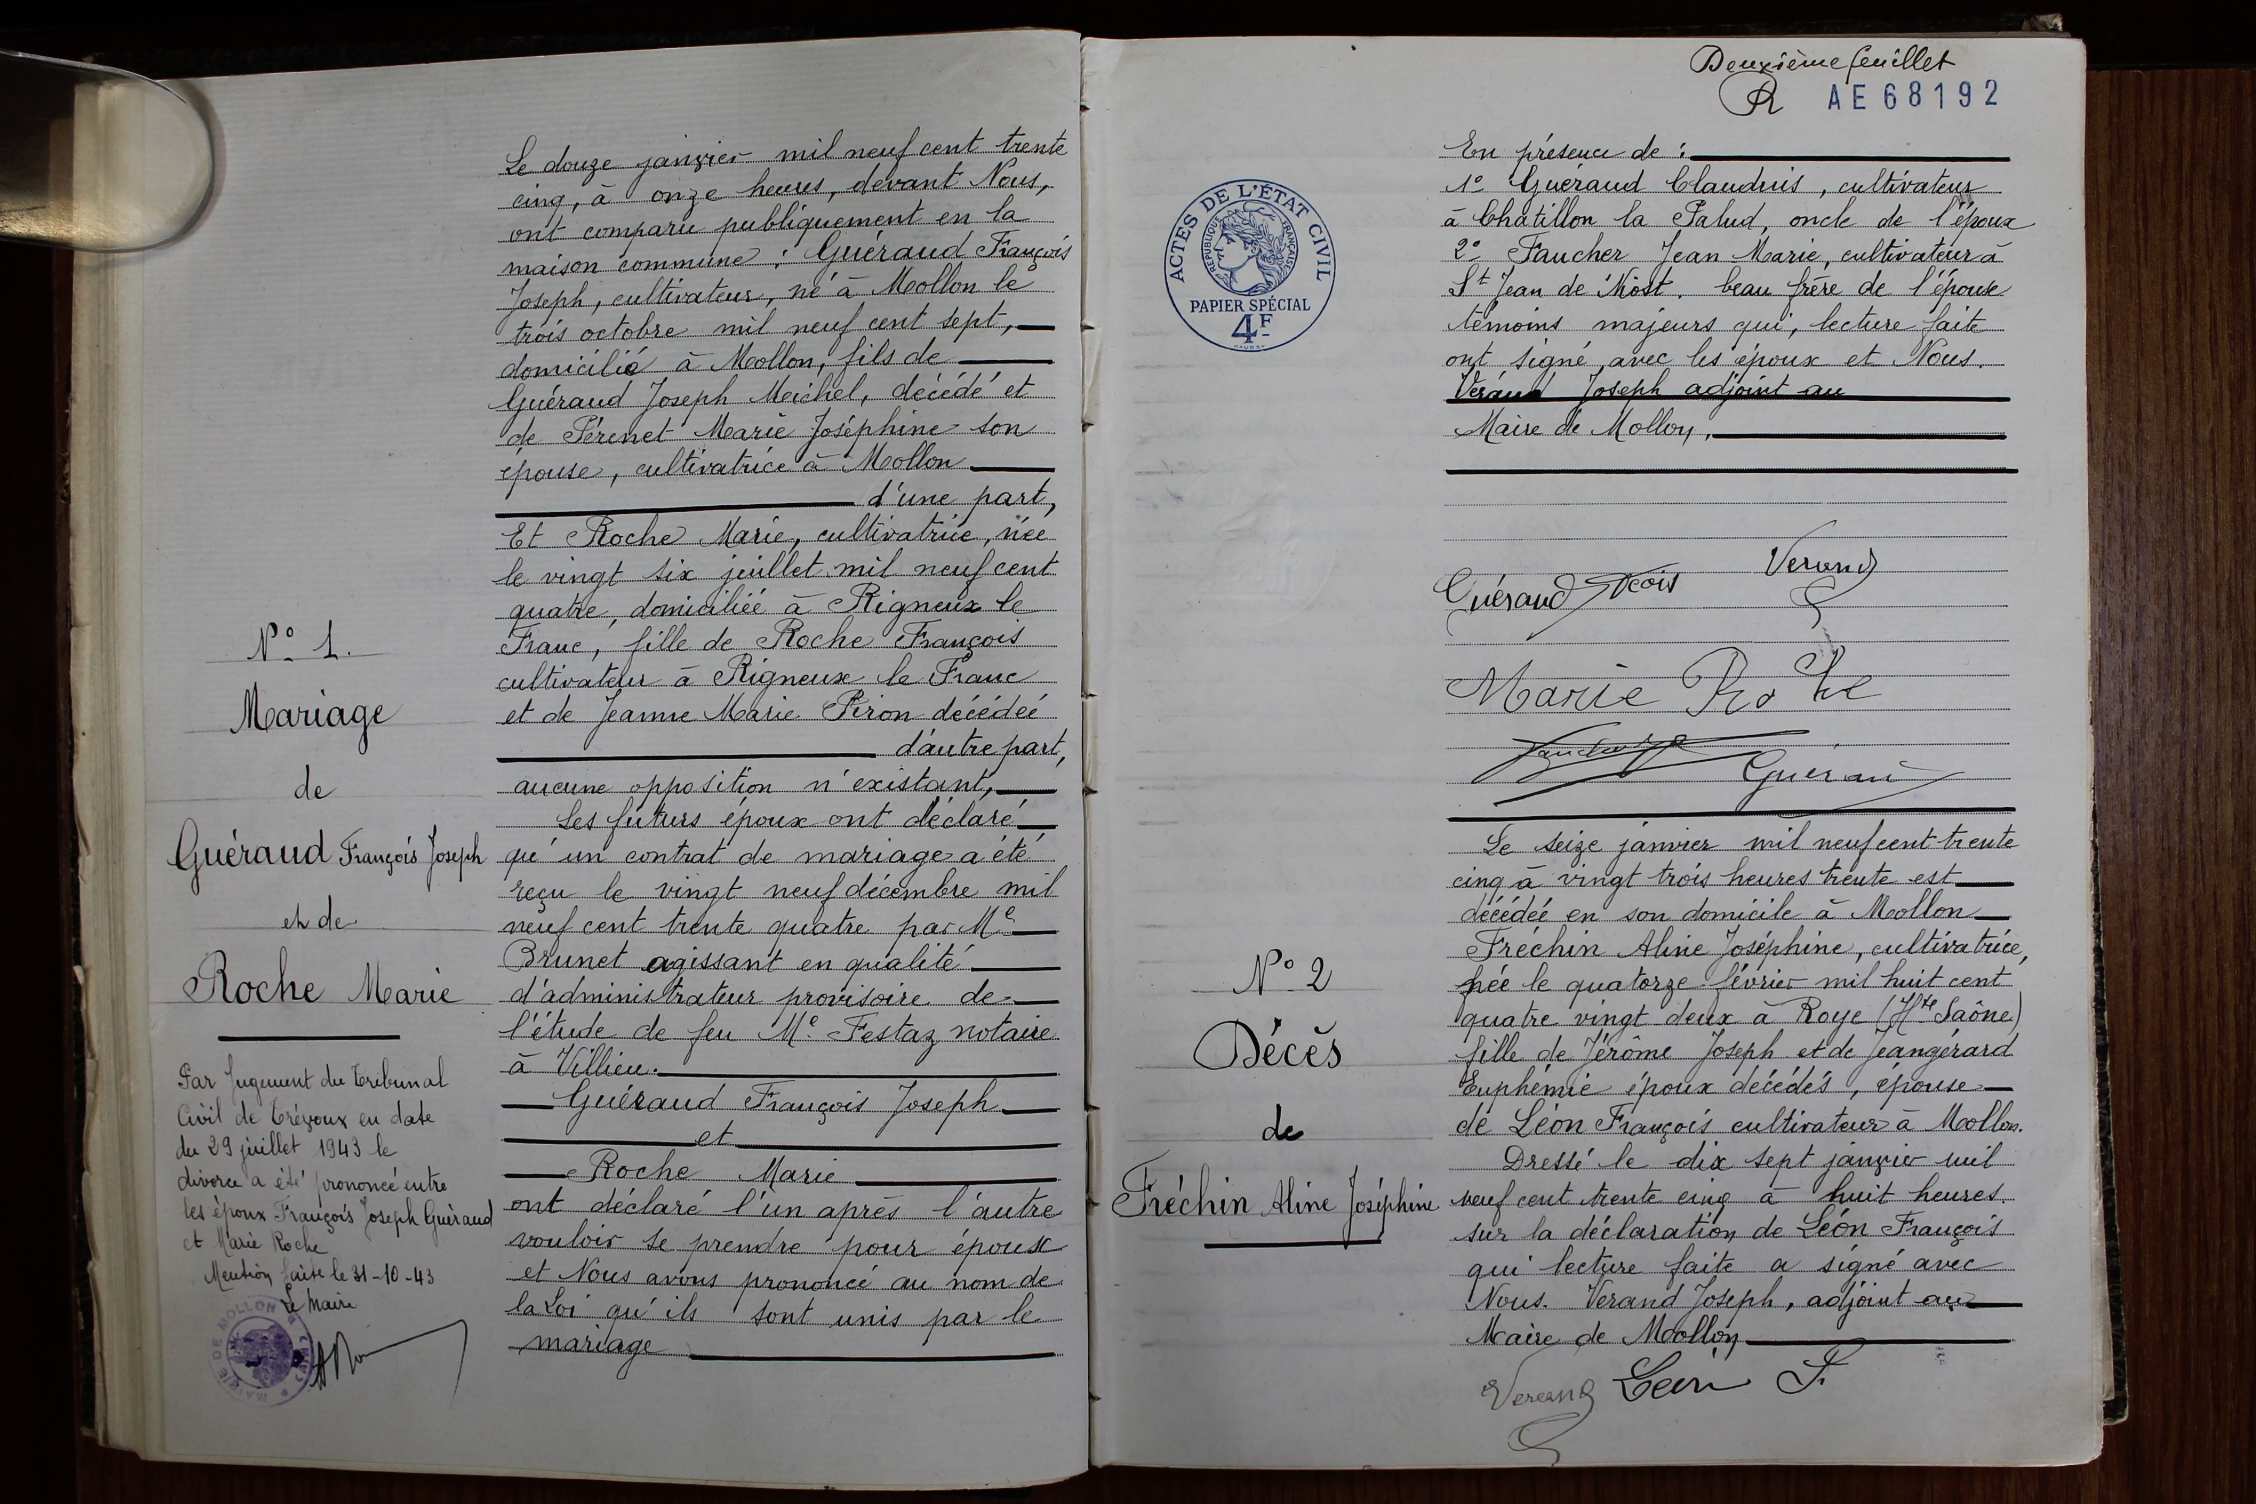 N° 1.
Mariage
de
Guéraud François Joseph
et de
Roche Marie
Par Jugement du Tribunal
Civil de Trévoux en date
du 29 juillet 1943 le
divorce a été prononcé entre
les époux François Joseph Guéraud
et Marie Roche
Mention faite le 31-10-43
Le Maire
MAIRIE DE MOLLON (AIN)
Le douze janvier mil neuf cent trente
cinq, à onze heures, devant Nous,
ont comparu publiquement en la
maison commune : Guéraud François
Joseph, cultivateur, né à Mollon le
trois octobre mil neuf cent sept,
domicilié à Mollon, fils de
Guéraud Joseph Meichel, décédé et
de Pérenet Marie Joséphine son
épouse, cultivatrice à Mollon
d'une part,
Et Roche Marie, cultivatrice, née
le vingt six juillet mil neuf cent
quatre, domiciliée à Rigneux le
Franc, fille de Roche François
cultivateur à Rigneux le Franc
et de Jeanne Marie Piron décédée
d'autre part,
aucune opposition n'existant,
Les futurs époux ont déclaré
qu'un contrat de mariage a été
reçu le vingt neuf décembre mil
neuf cent trente quatre par Me
Brunet agissant en qualité
d'administrateur provisoire de
l'étude de feu Me Festaz notaire
à Villieu.
Guéraud François Joseph
et
Roche Marie
ont déclaré l'un après l'autre
vouloir se prendre pour époux
et Nous avons prononcé au nom de
la Loi qu'ils sont unis par le
mariage
Deuxième feuillet
AE68192
ACTES DE L'ÉTAT CIVIL
RÉPUBLIQUE FRANÇAISE
PAPIER SPÉCIAL
4F
En présence de :
1° Guéraud Claudius, cultivateur
à Chatillon la Palud, oncle de l'époux
2° Faucher Jean Marie, cultivateur à
St Jean de Niost. beau frère de l'épouse
témoins majeurs qui, lecture faite
ont signé avec les époux et Nous.
Verand Joseph adjoint au
Maire de Mollon,
Guéraud Fçois
Verand
Marie Roche
Guéraud
Le seize janvier mil neuf cent trente
cinq à vingt trois heures trente est
décédée en son domicile à Mollon
Fréchin Aline Joséphine, cultivatrice,
née le quatorze février mil huit cent
quatre vingt deux à Roye (Hte Saône)
fille de Jérôme Joseph et de Jeangérard
Euphémie époux décédés, épouse
de Léon François cultivateur à Mollon.
Dressé le dix sept janvier mil
neuf cent trente cinq à huit heures.
sur la déclaration de Léon François
qui lecture faite a signé avec
Nous. Verand Joseph, adjoint au
Maire de Mollon
Verand Léon F.
N° 2
Décès
de
Fréchin Aline Joséphine